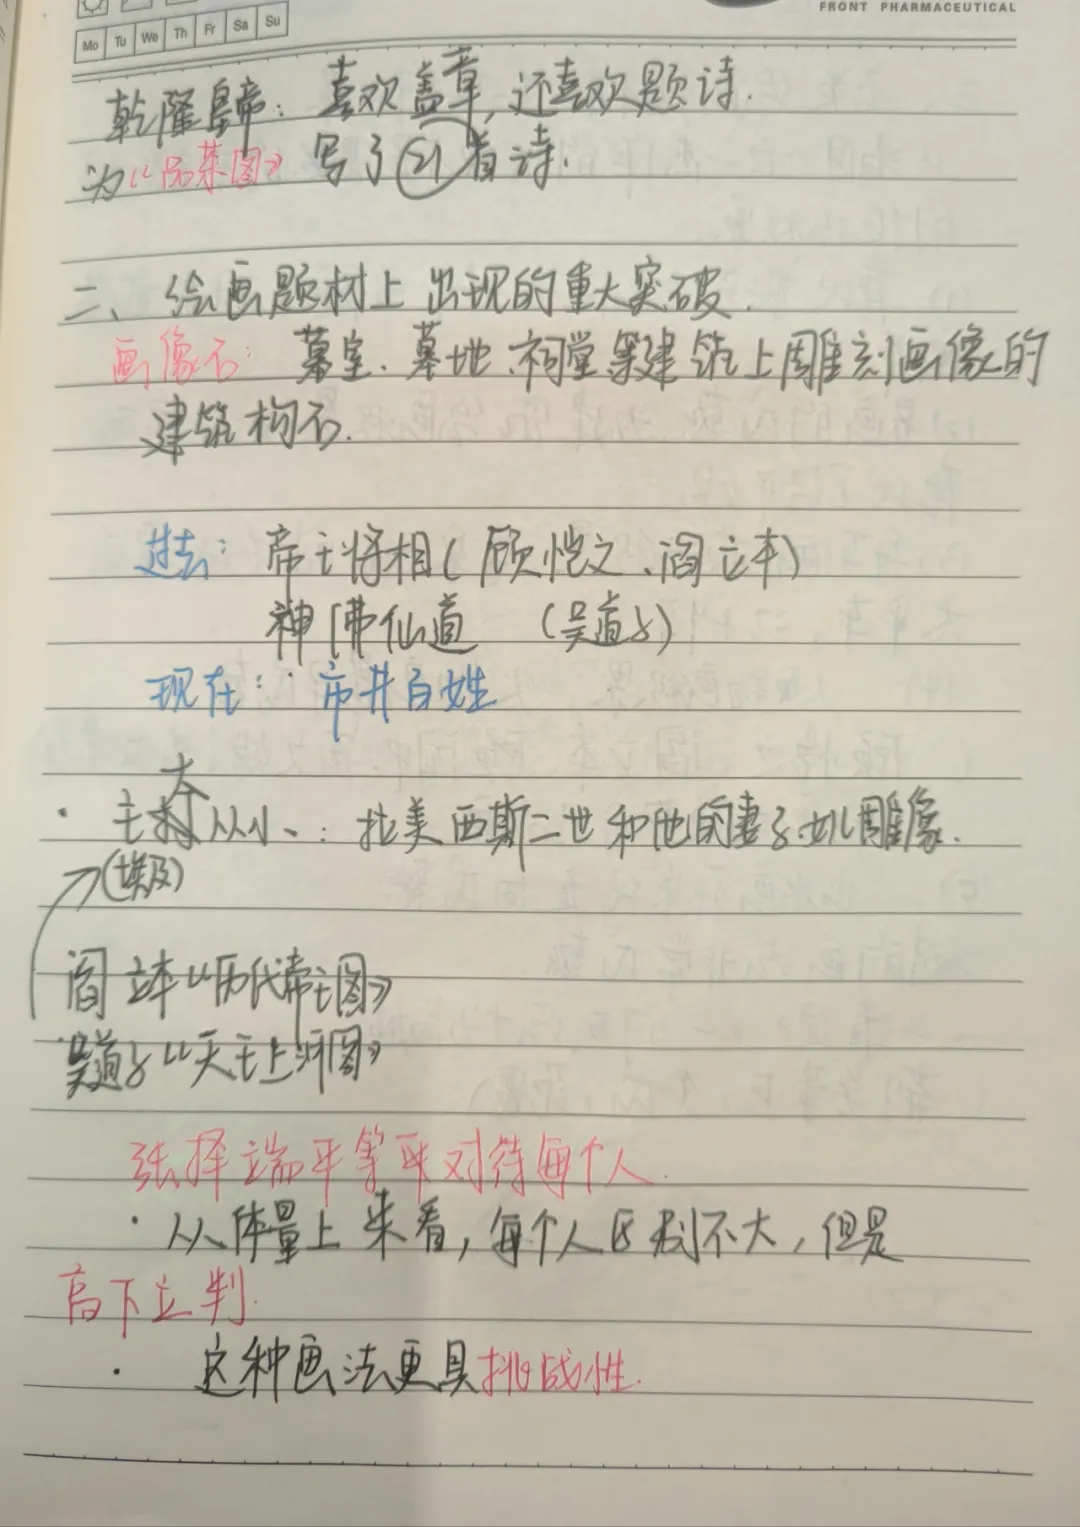 FRONT PHARMACEUTICAL
Mo Tu We Th Fr Sa Su
乾隆皇帝：喜欢盖章，还喜欢题诗.
为《品茶图》写了21首诗.
二、绘画题材上出现的重大突破.
画像石：墓室.墓地.祠堂等建筑上雕刻画像的
建筑构石.
过去：帝王将相（顾恺之、阎立本）
神佛仙道（吴道子）
现在：市井百姓
大
·主 从小、：拉美西斯二世和他的妻子 雕像.
（埃及）
阎立本《历代帝王图》
吴道子《天王上 图》
张择端平等来对待每个人.
·从体量上来看，每个人区别不大，但是
高下立判.
·这种画法更具挑战性.